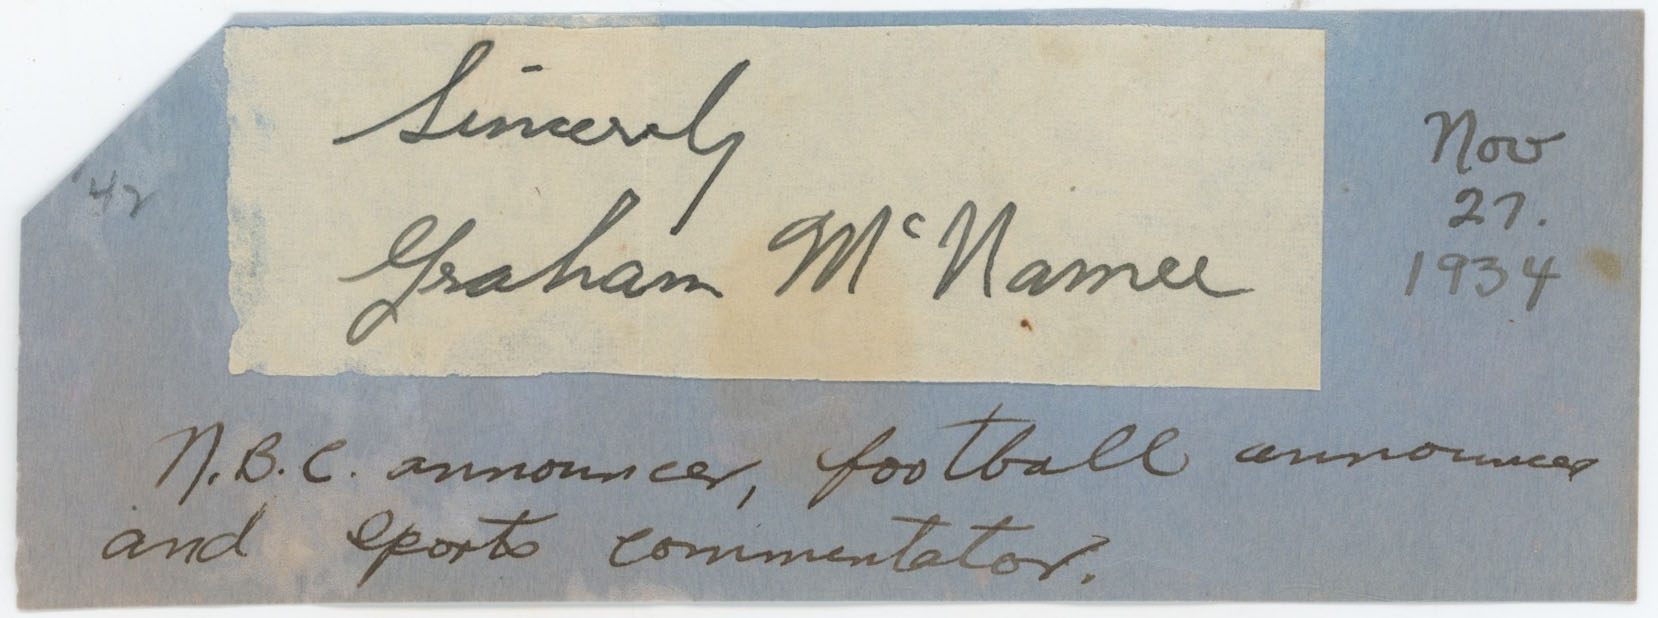 Sincerely
Graham McNamee
Nov
27.
1934
'42
N.B.C. announcer, football announcer
and sports commentator.